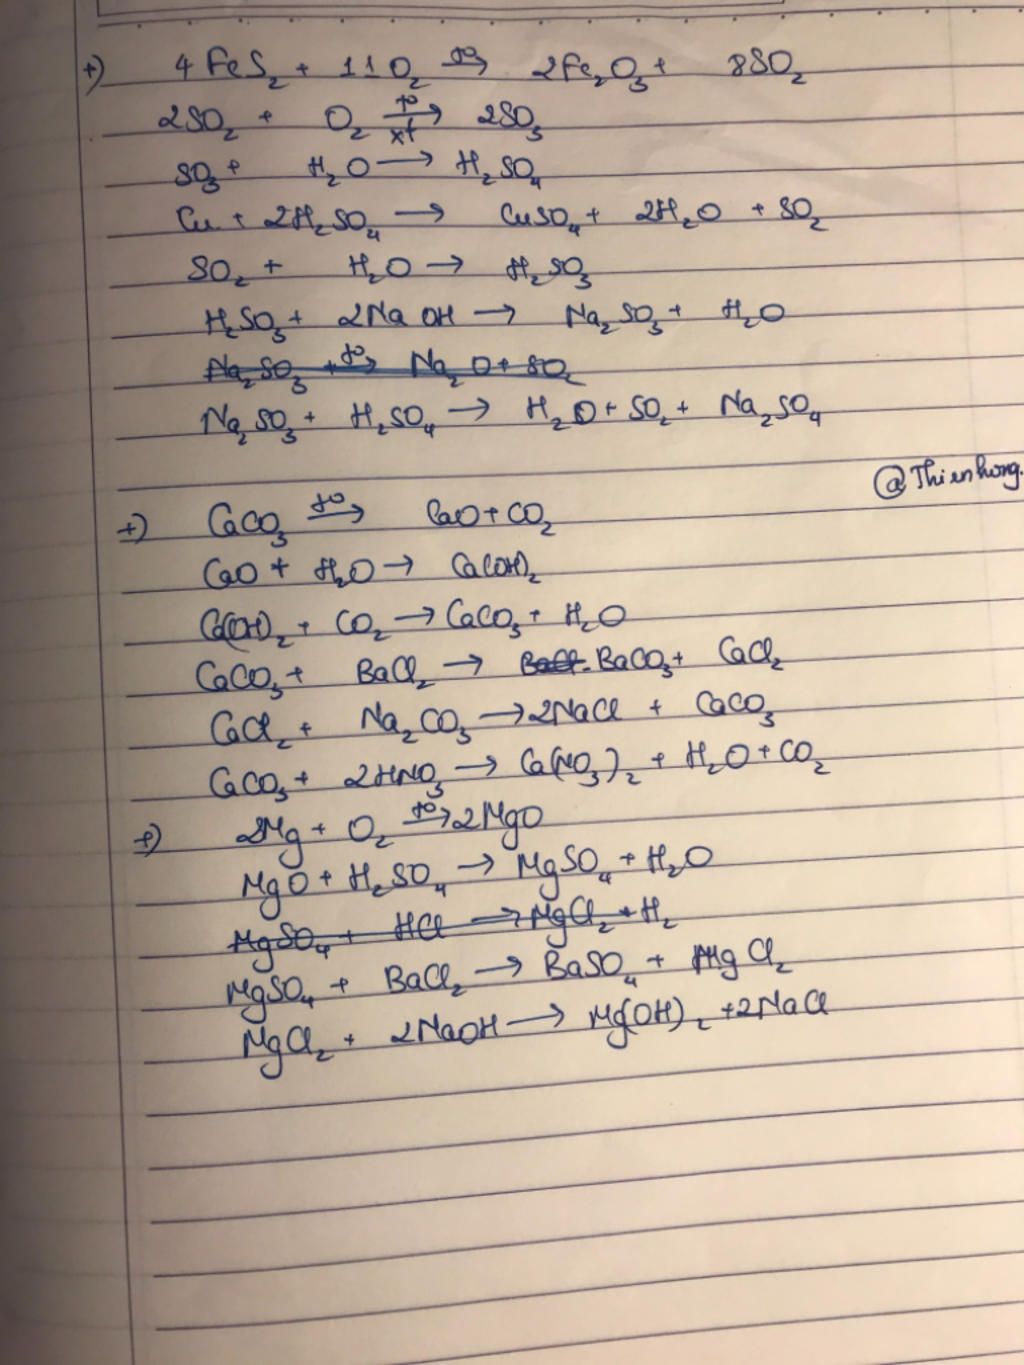 +) 4FeS₂ + 11O₂ t°→ 2Fe₂O₃ + 8SO₂
2SO₂ + O₂ t°→ xt 2SO₃
SO₃ + H₂O → H₂SO₄
Cu + 2H₂SO₄ → CuSO₄ + 2H₂O + SO₂
SO₂ + H₂O → H₂SO₃
H₂SO₃ + 2NaOH → Na₂SO₃ + H₂O
Na₂SO₃ + t°→ Na₂O + SO₂
Na₂SO₃ + H₂SO₄ → H₂O + SO₂ + Na₂SO₄
@Thienhuong.
+) CaCO₃ t°→ CaO + CO₂
CaO + H₂O → Ca(OH)₂
Ca(OH)₂ + CO₂ → CaCO₃ + H₂O
CaCO₃ + BaCl₂ → BaCO₃ + CaCl₂
CaCl₂ + Na₂CO₃ → 2NaCl + CaCO₃
CaCO₃ + 2HNO₃ → Ca(NO₃)₂ + H₂O + CO₂
+) 2Mg + O₂ t°→ 2MgO
MgO + H₂SO₄ → MgSO₄ + H₂O
MgSO₄ + HCl → MgCl₂ + H₂
MgSO₄ + BaCl₂ → BaSO₄ + MgCl₂
MgCl₂ + 2NaOH → Mg(OH)₂ + 2NaCl